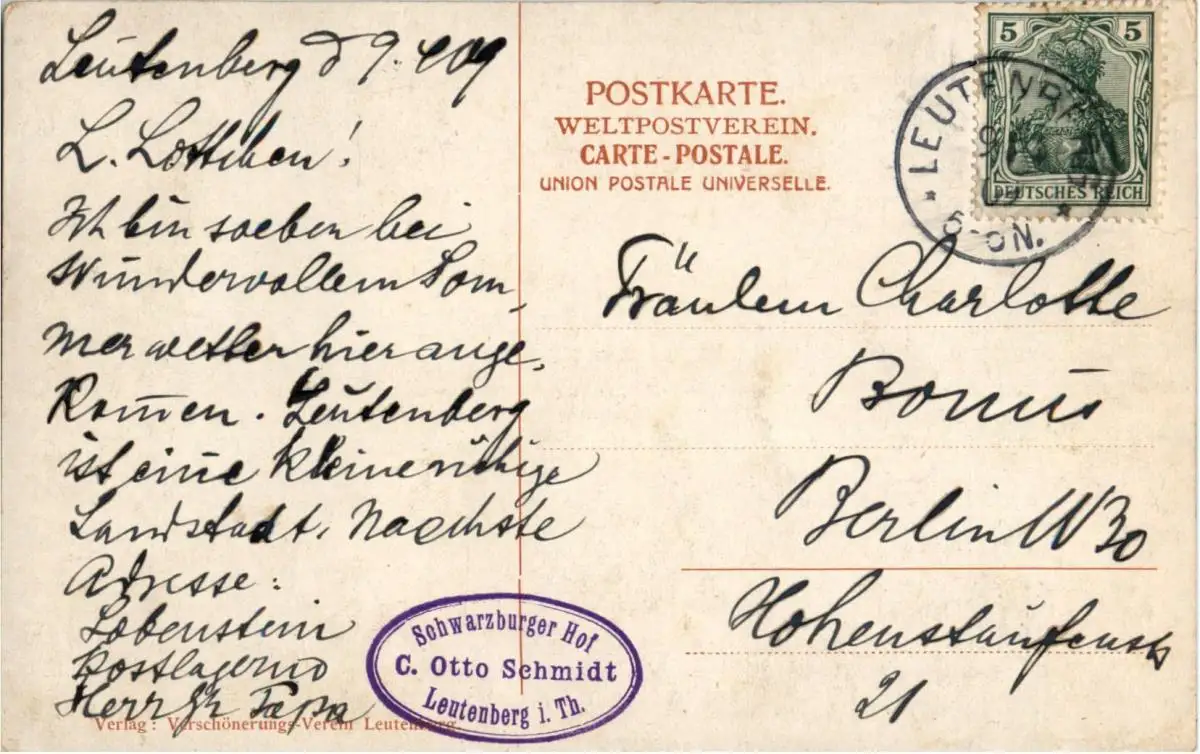 Leutenberg d 9.
L. Lottchen!
Ich bin soeben bei
wundervollem Som-
merwetter hier ange-
kom̅en. Leutenberg
ist eine kleine ruhige
Landstadt. Naechste
Adresse:
Lobenstein
postlagernd
Herr
Verlag: Verschönerungs-Verein Leutenberg.
Schwarzburger Hof
C. Otto Schmidt
Leutenberg i. Th.
POSTKARTE.
WELTPOSTVEREIN.
CARTE-POSTALE.
UNION POSTALE UNIVERSELLE.
5 5
DEUTSCHES REICH
* LEUTENBERG *
N.
Fräulein Charlotte
Bonus
Berlin W 30
Hohenstaufenstr
21